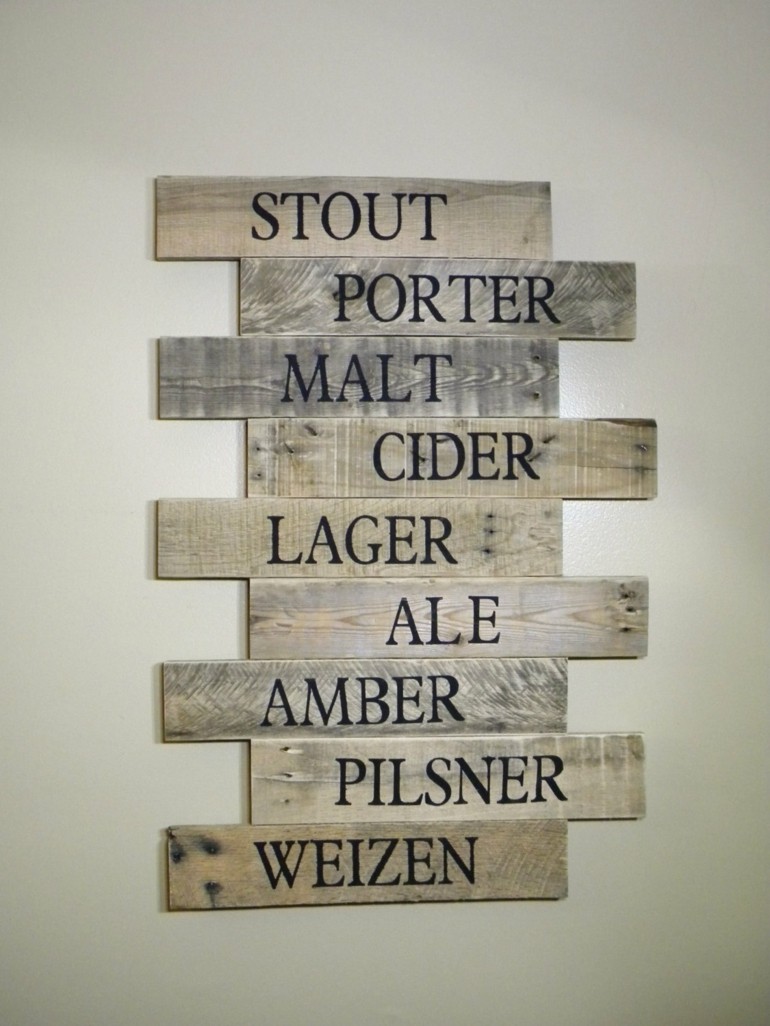 STOUT
PORTER
MALT
CIDER
LAGER
ALE
AMBER
PILSNER
WEIZEN